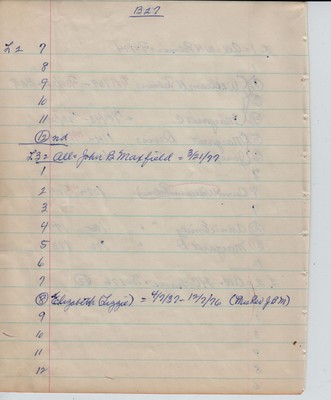 B27
L2 7
8
9
10
11
(12) nd
L3 = All = John B. Maxfield = 3/21/77
1
2
3
4
5
6
7
(8) Elizabeth (Lizzie) = 4/7/37 - 12/7/76 (Mrs J.B.M)
9
10
11
12